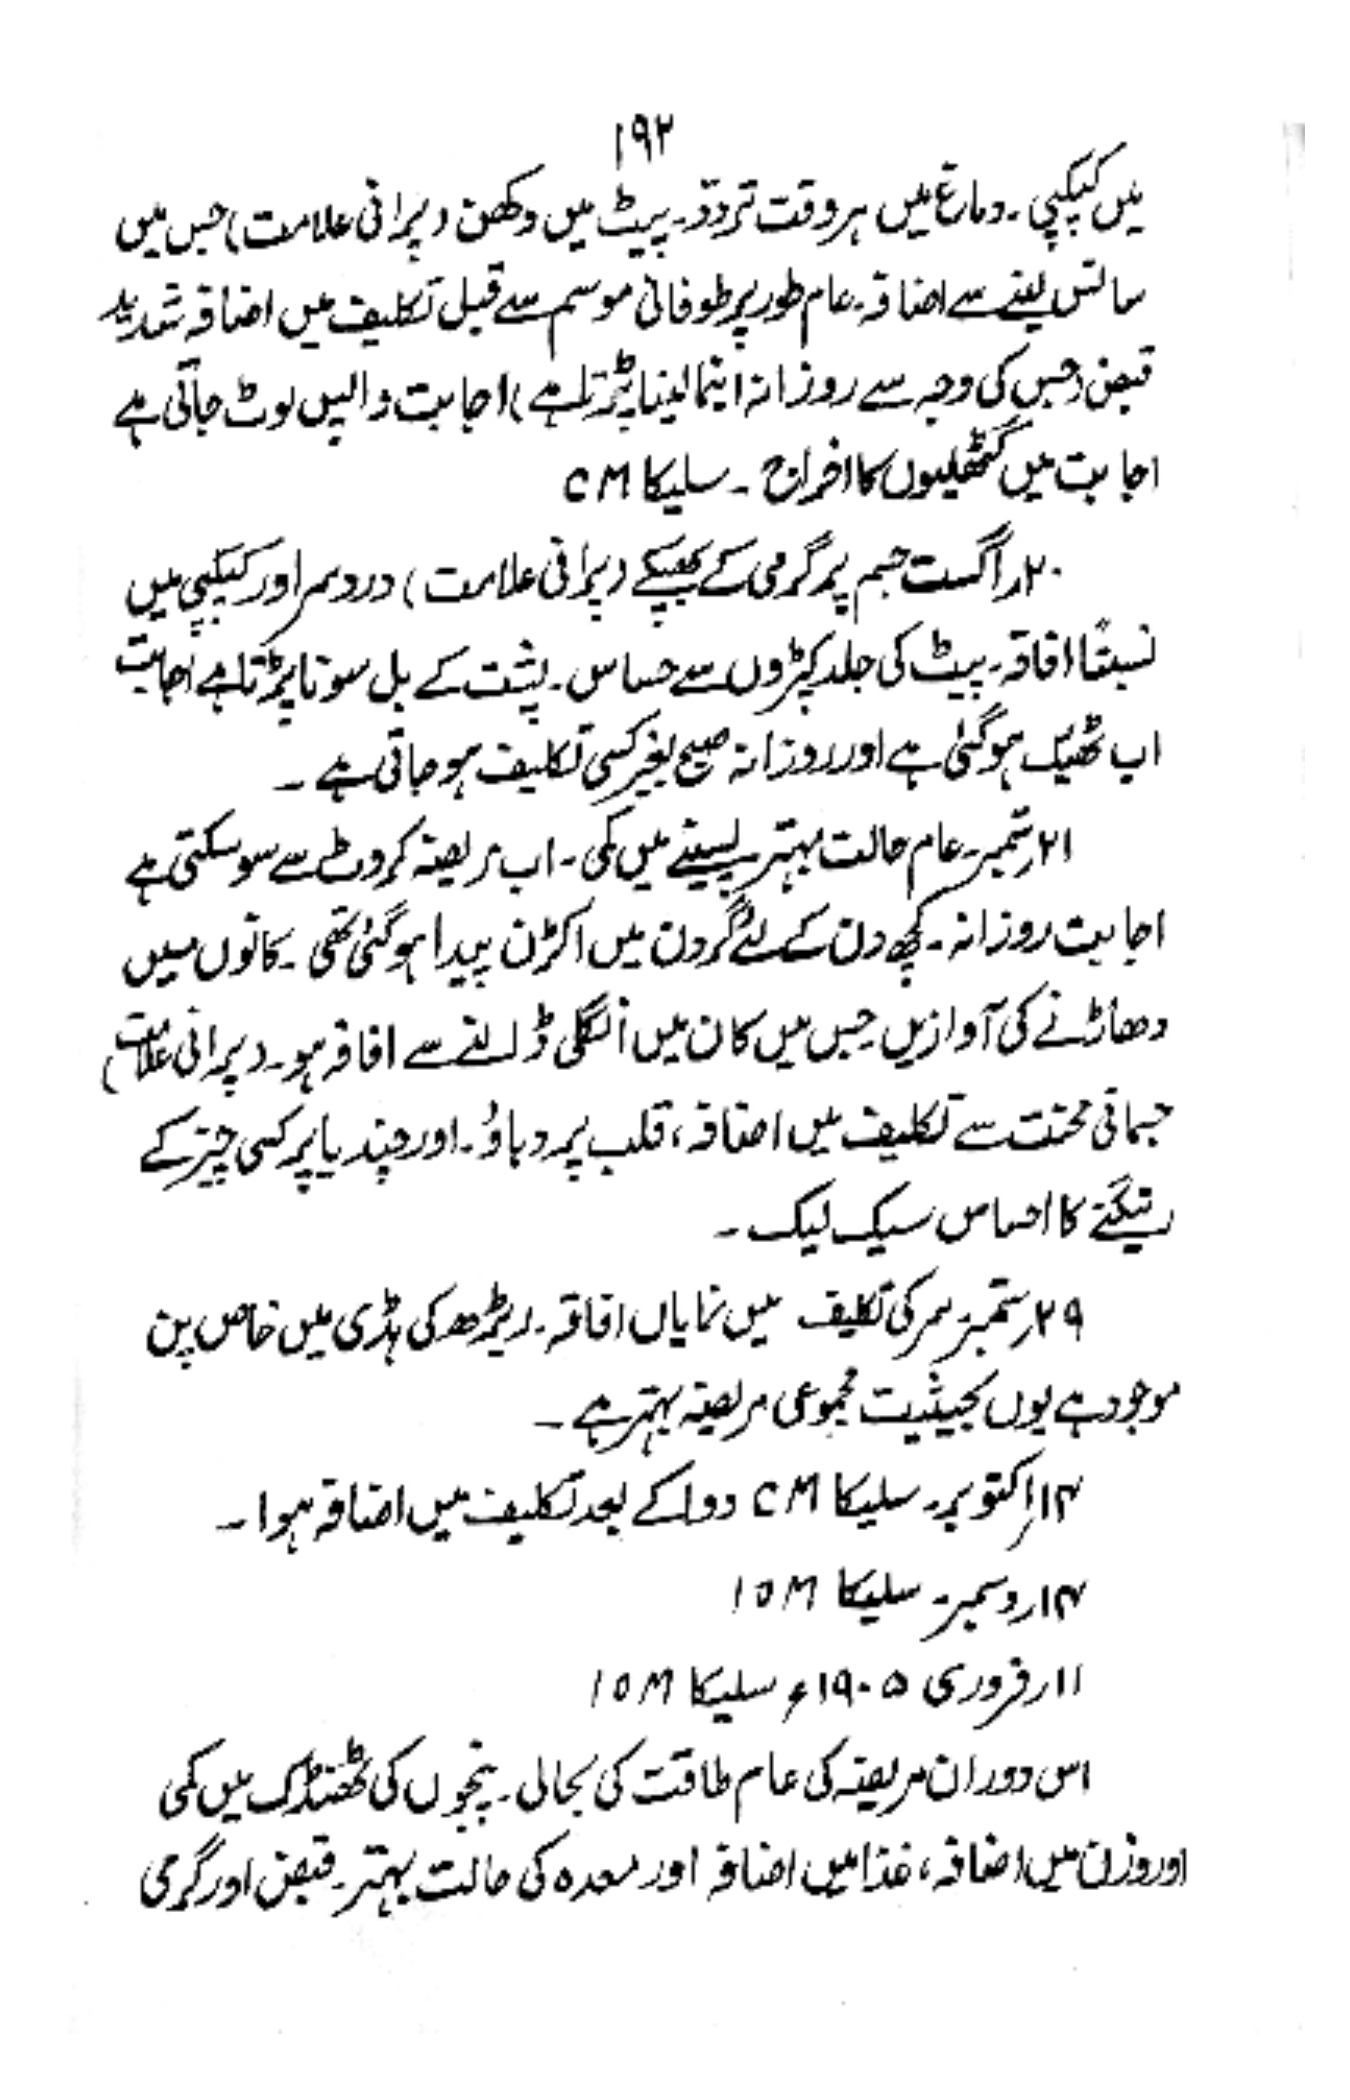 ۱۹۲
میں کپکپی ۔ دماغ میں ہر وقت تردّد۔ پیٹ میں دکھن (پرانی علامت) جس میں
سانس لینے سے اضافہ۔ عام طور پر طوفانی موسم سے قبل تکلیف میں اضافہ شدید
قبض (جس کی وجہ سے روزانہ اینما لینا پڑتا ہے) اجابت واپس لوٹ جاتی ہے
اجابت میں گٹھلیوں کا اخراج ۔ سلیکا CM
۲۰ر اگست جسم پر گرمی کے بھپکے (پرانی علامت) درد سر اور کپکپی میں
نسبتاً افاقہ۔ پیٹ کی جلد کپڑوں سے حساس۔ پشت کے بل سونا پڑتا ہے اجابت
اب ٹھیک ہوگئی ہے اور روزانہ صبح بغیر کسی تکلیف ہو جاتی ہے ۔
۲۱ر ستمبر۔ عام حالت بہتر پسینے میں کمی ۔ اب مریضہ کروٹ سے سو سکتی ہے
اجابت روزانہ ۔ کچھ دن کے لئے گردن میں اکڑن پیدا ہوگئی تھی ۔ کانوں میں
دھاڑنے کی آوازیں جس میں کان میں اُنگلی ڈالنے سے افاقہ ہو۔ (پرانی علامت)
جسمانی محنت سے تکلیف میں اضافہ، قلب پر دباؤ۔ اور چندیا پر کسی چیز کے
رینگنے کا احساس سیک لیک ۔
۲۹ر ستمبر۔ سر کی تکلیف میں نمایاں افاقہ۔ ریڑھ کی ہڈی میں خاص پن
موجود ہے یوں بحیثیت مجموعی مریضہ بہتر ہے ۔
۱۴ر اکتوبر۔ سلیکا CM دوا کے بعد تکلیف میں اضافہ ہوا ۔
۱۴ر دسمبر۔ سلیکا 10M
۱۱ر فروری ۱۹۰۵ء سلیکا 10M
اس دوران مریضہ کی عام طاقت کی بحالی ۔ پنجوں کی ٹھنڈک میں کمی
اور وزن میں اضافہ، غذا میں اضافہ اور معدہ کی حالت بہتر۔ قبض اور گرمی